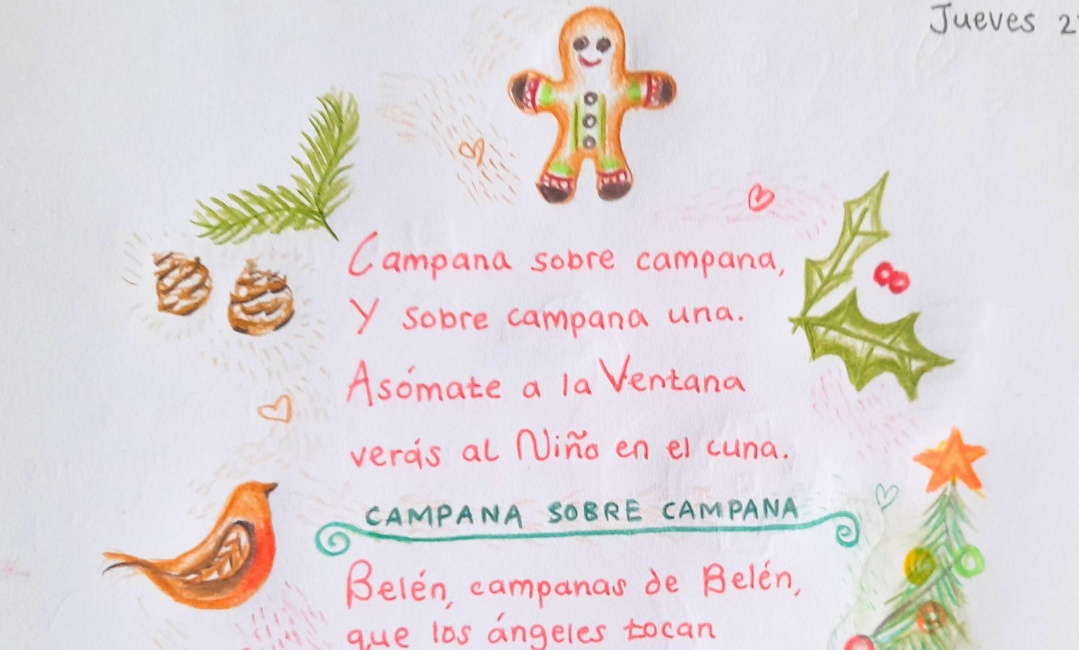 Jueves 2
Campana sobre campana,
Y sobre campana una.
Asómate a la Ventana
verás al Niño en el cuna.
CAMPANA SOBRE CAMPANA
Belén, campanas de Belén,
que los ángeles tocan